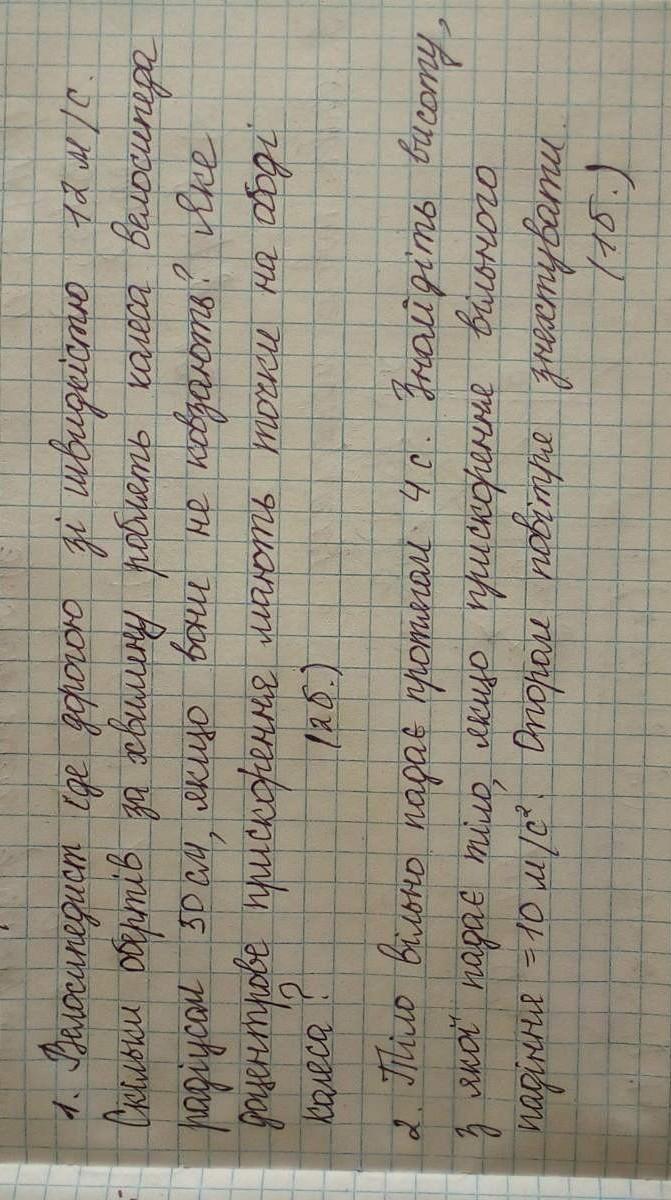 1. Велосипедист їде дорогою зі швидкістю 12 м/с.
Скільки обертів за хвилину роблять колеса велосипеда
радіусом 30 см, якщо вони не ковзають? Яке
доцентрове прискорення мають точки на ободі
колеса? (2б.)
2. Тіло вільно падає протягом 4 с. Знайдіть висоту,
з якої падає тіло, якщо прискорення вільного
падіння = 10 м/с². Опором повітря знехтувати.
(1б.)